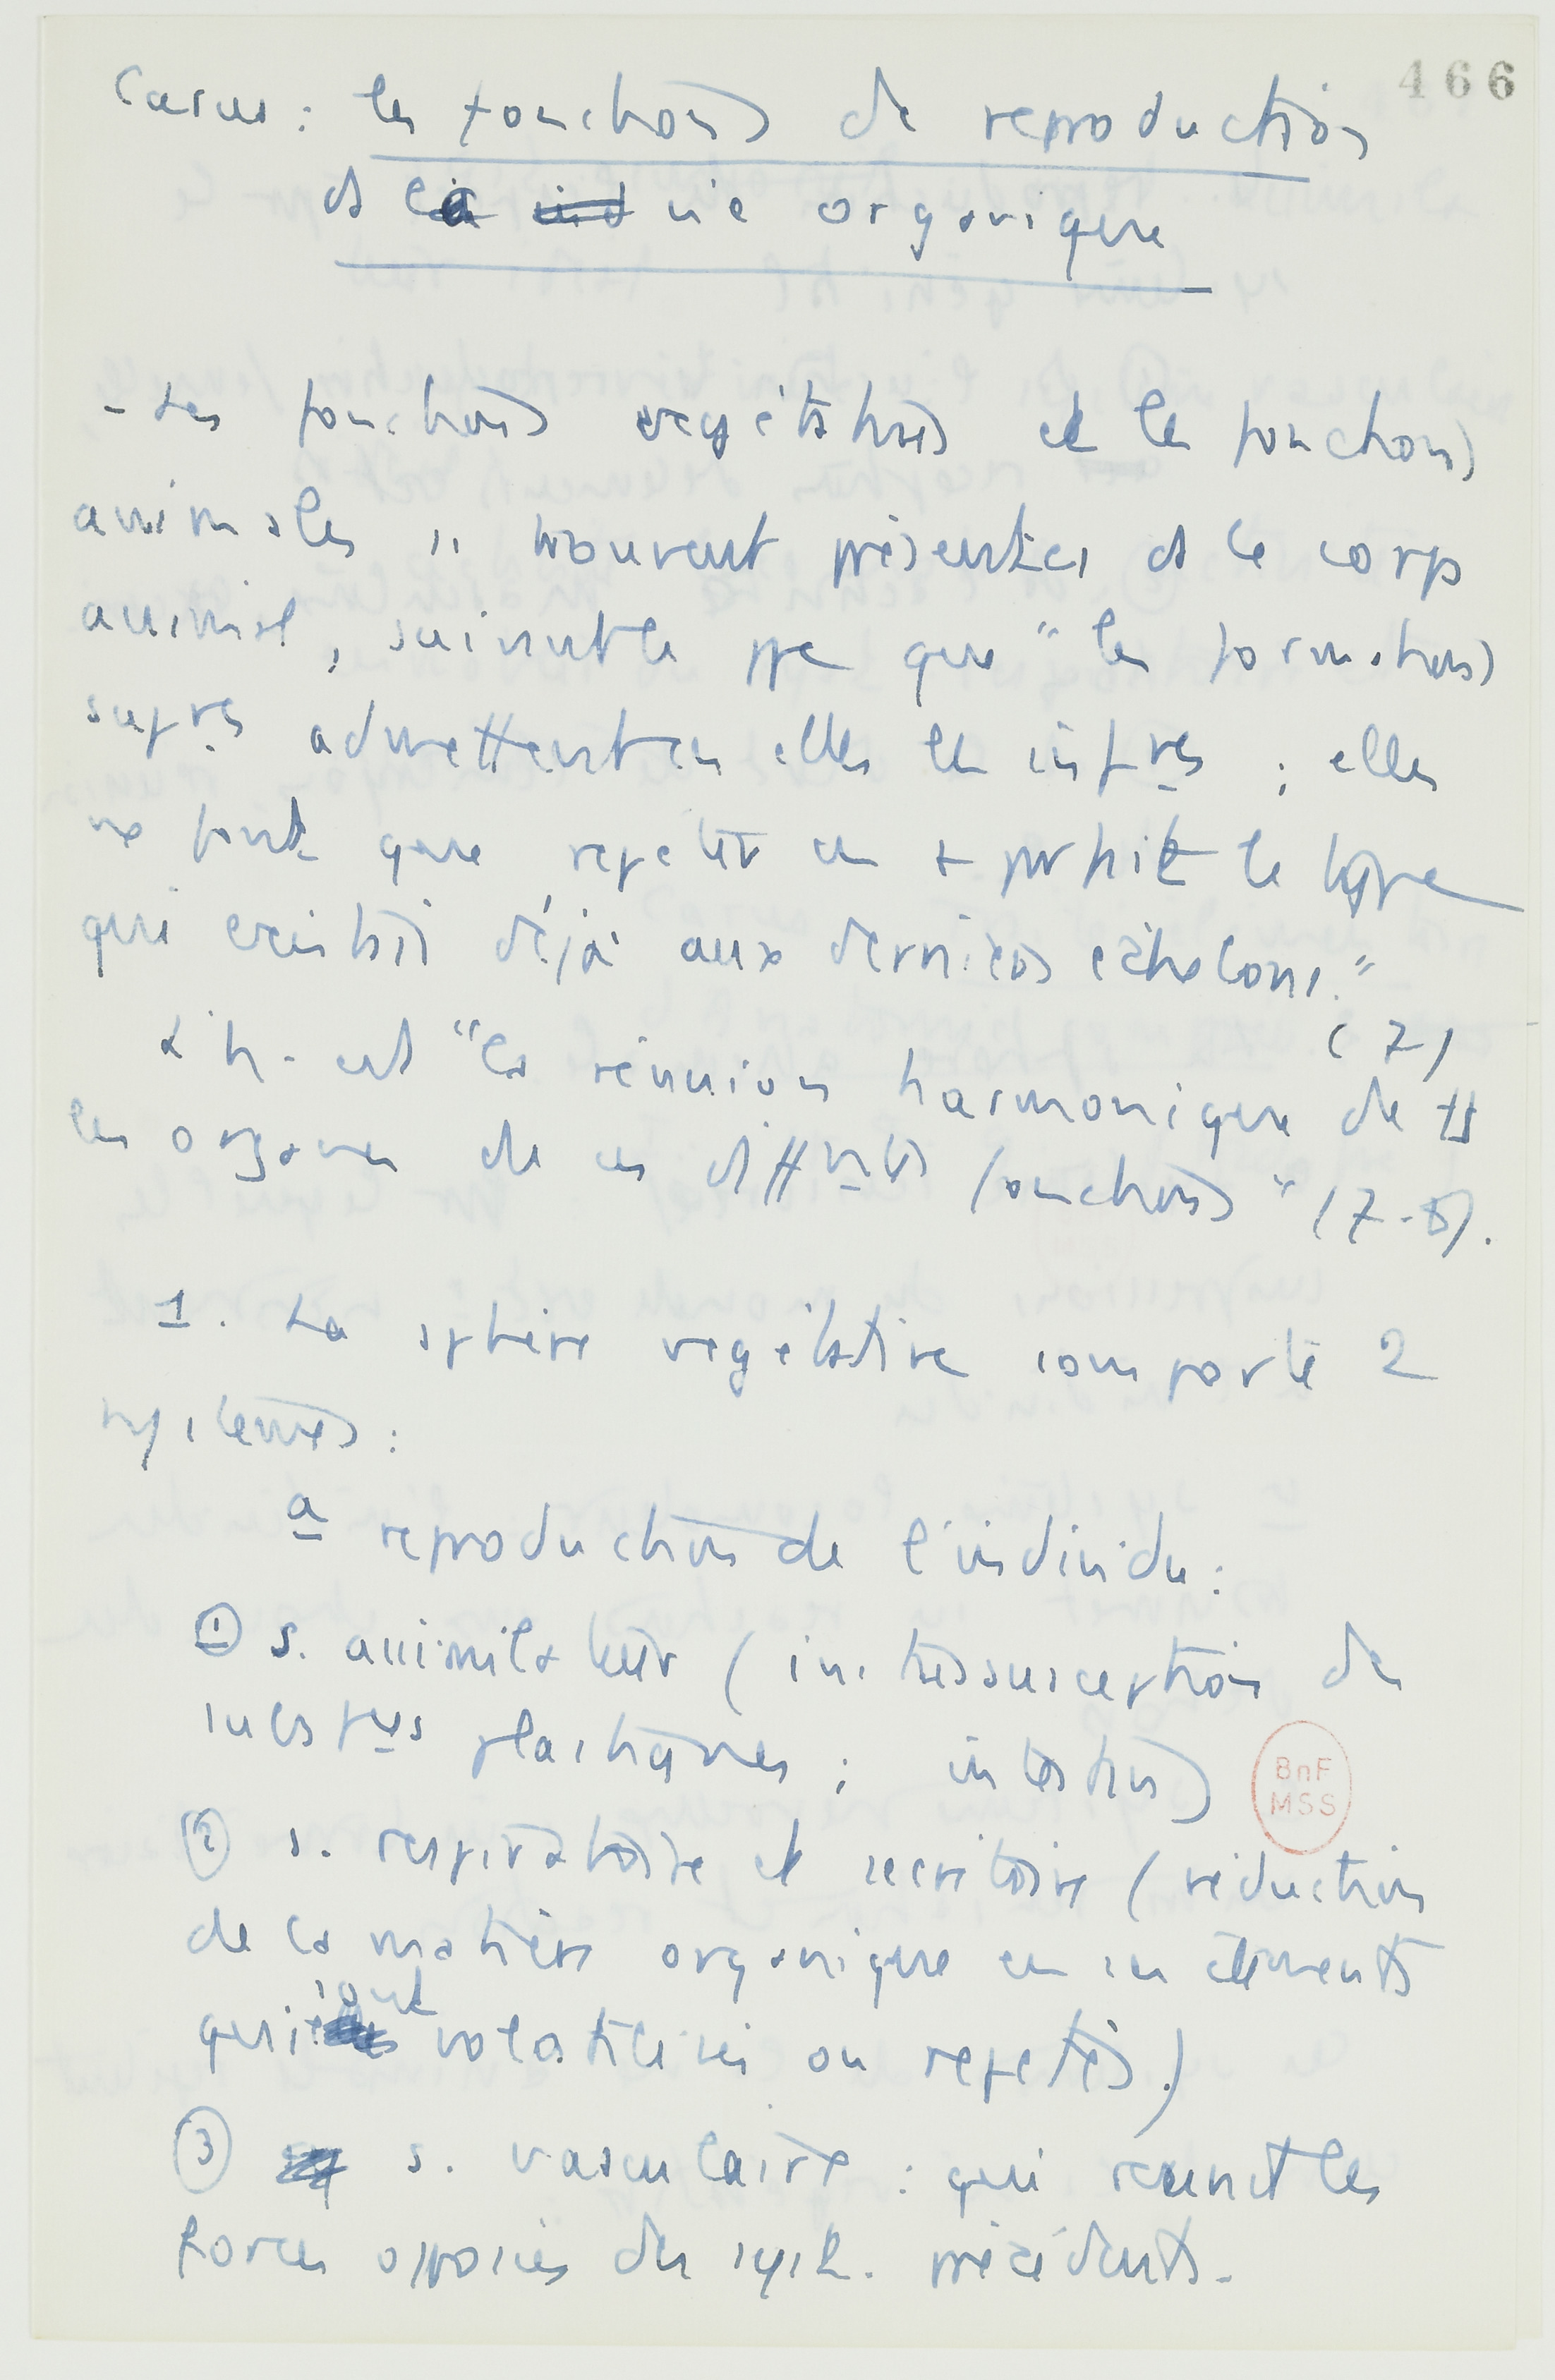 466
Carus : les fonctions de reproduction
ds la vie organique
- Les fonctions végétatives et les fonctions
animales se trouvent présentes ds le corps
animal, suivant le ppe que "les formations
supres admettent en elles les infres ; elles
ne font que répéter en + parfait le type
qui existait déjà aux derniers échelons."
(7)
L'h. est "la réunion harmonique de ts
les organes de ces diffrentes fonctions" (7-8).
1. La sphère végétative comporte 2
systèmes :
a reproduction de l'individu :
① s. assimilateur (intussusception de
substances plastiques ; intestins)
② s. respiratoire et secrétoire (réduction
de la matière organique en ses éléments
qui sont volatilisés ou rejetés.)
③ s. vasculaire : qui réunit les
forces opposées des syst. précédents.
BnF
MSS